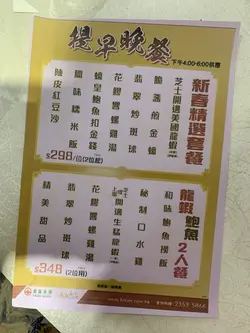 提早晚餐
下午4:00-6:00供應
新春精選套餐
脆滿煎金蠔
芝士開邊美國龍蝦
翡翠炒斑球
花膠響螺雞湯
蠔皇鮑魚扣金錢
臘味糯米飯
陳皮紅豆沙
$298/位(2位起)
龍蝦鮑魚2人餐
和味鮑魚撈飯
秘制口水雞
芝士開邊生猛龍蝦
花膠響螺雞湯
翡翠炒斑球
精美甜品
$348(2位用)
2359-5866